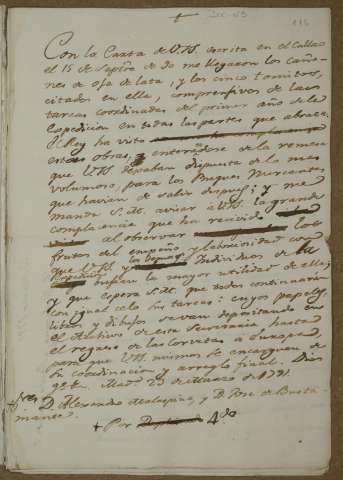 Con la Carta de V.M. escrita en el Callao
el 15 de Septre de 90 me llegaron los caño-
nes de oja de lata, y los cinco tomitos,
citados en ella, comprensivos de las
tareas coordinadas del primer año de la
Expedicion en todas las partes que abraza.
El Rey ha visto
estas obras, y enterádose de la remesa
que V.M. dexaban dispuesta de la mas
voluminoso, para los Buques Mercantes
que havian de salir despues; y me
manda S.M. avisar à V.M. la grande
complacencia que ha recivido
al observar los
frutos del empeño y laboriosidad con
que V.M. y Individuos de la
buscan la mayor utilidad de ella;
y que espera S.M. que todos continuarán
con igual celo sus tareas: cuyos papeles,
libros y dibujos se van depositando en
el Archivo de esta Secretaria hasta
el regreso de las Corvetas a Europa,
para que V.M. mismos se encarguen de
su coordinacion y arreglo final. Dios
gue. Madd 29 de Marzo de 1791.
Sres D. Alexandro Malaspina, y D. Josè de Busta-
mante.
+ Por Dupdo